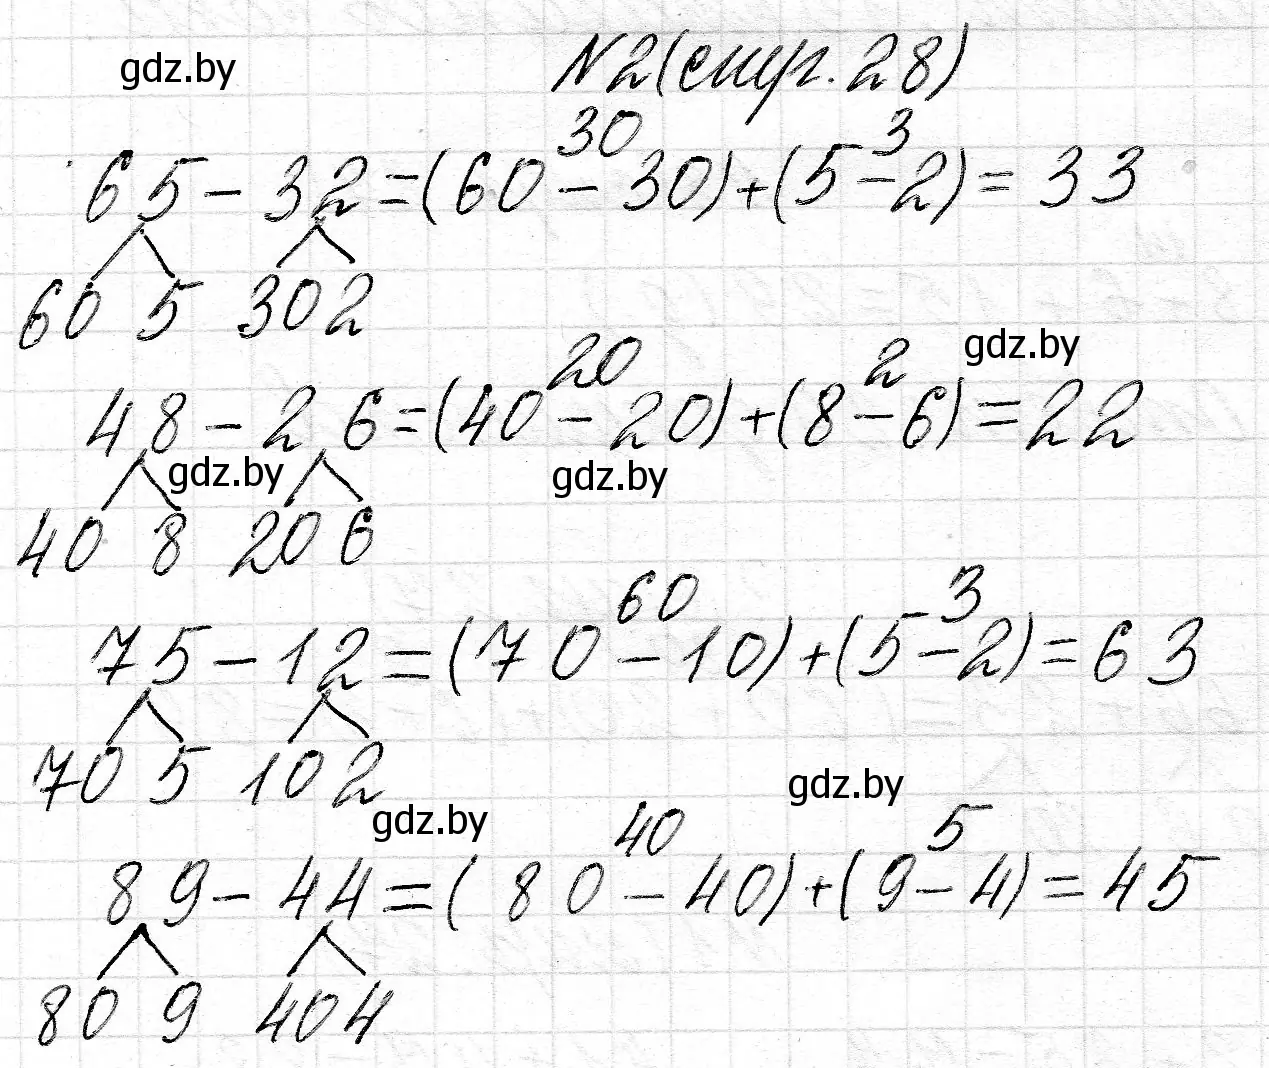 gdz.by
N2(стр.28)
30 3
65-32=(60-30)+(5-2)=33
60 5 30 2
20 2 gdz.by
48-26=(40-20)+(8-6)=22
gdz.by gdz.by
40 8 20 6
60 3
75-12=(70-10)+(5-2)=63
70 5 10 2 gdz.by
gdz.by 40 5
89-44=(80-40)+(9-4)=45
80 9 40 4